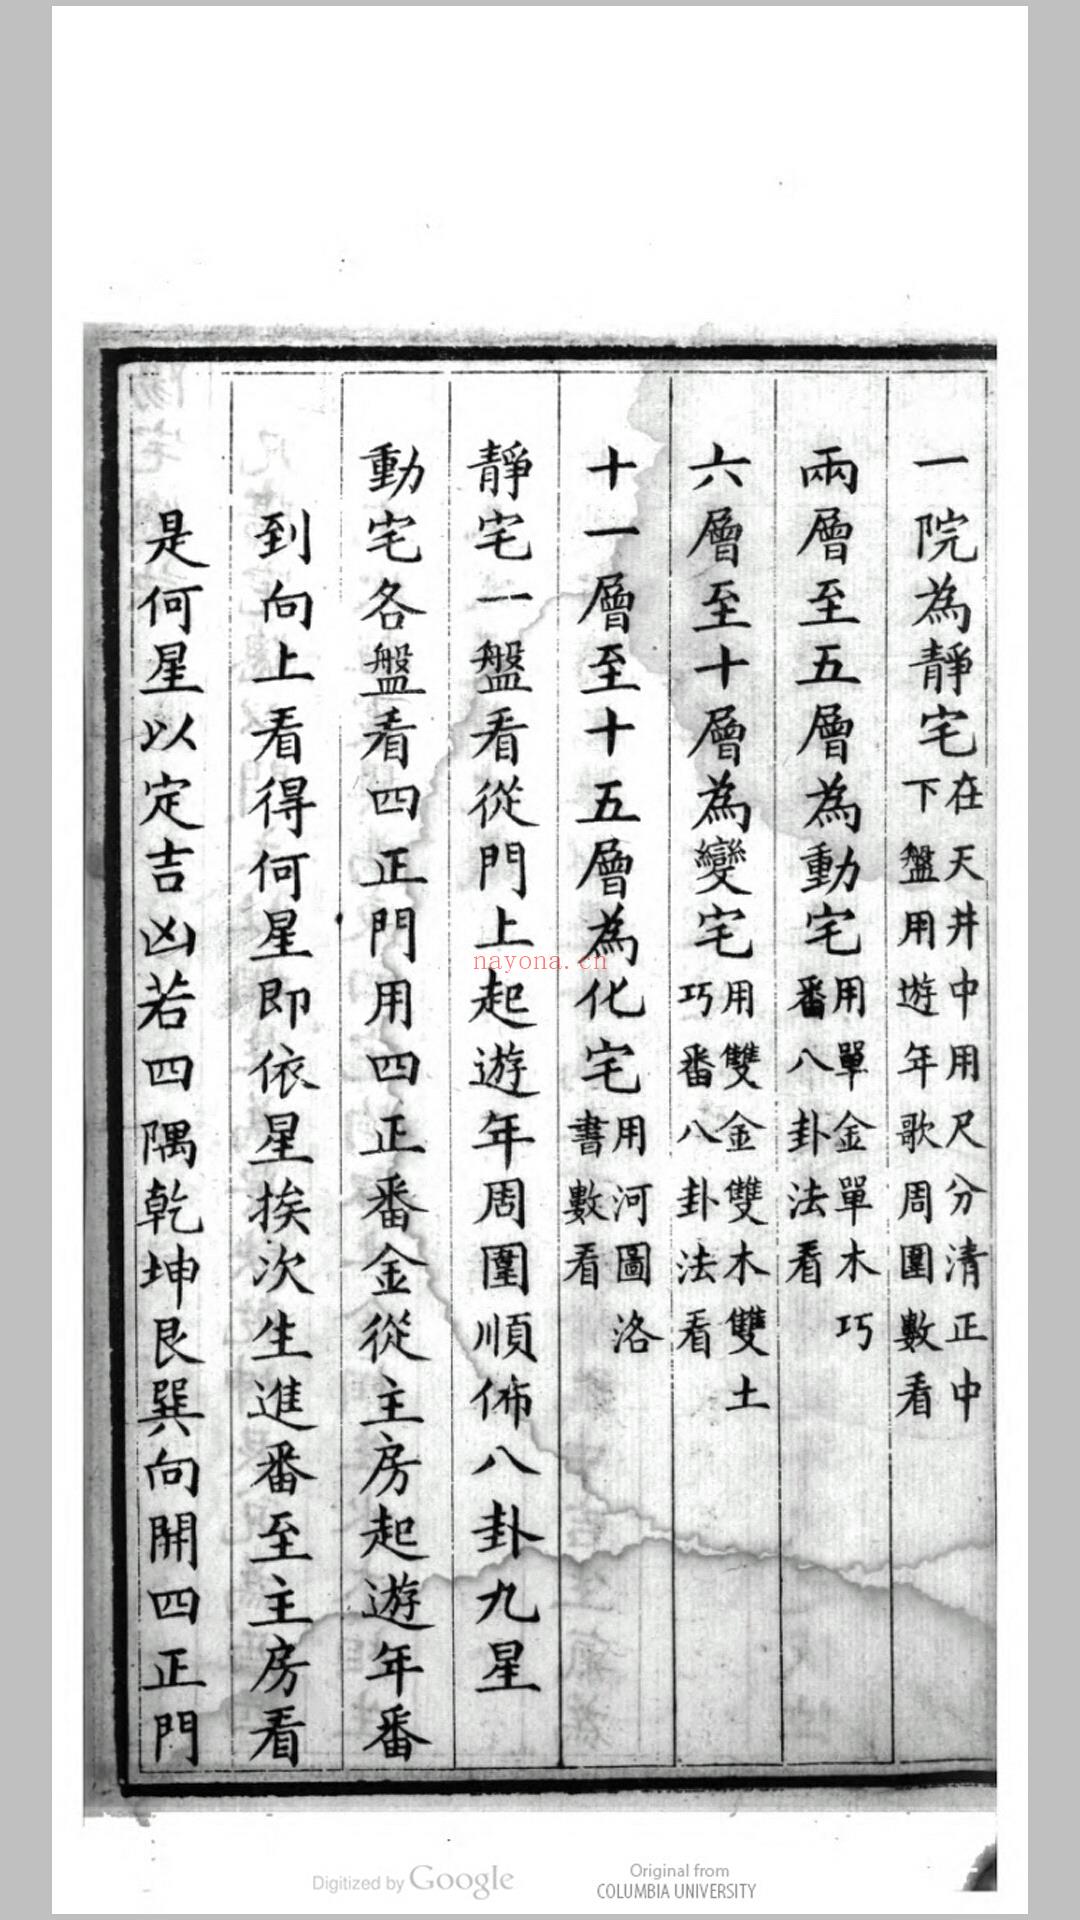 一院為靜宅在天井中用尺分清正中下盤用遊年歌周圍數看
兩層至五層為動宅用單金單木巧番八卦法看
六層至十層為變宅用雙金雙木雙土巧番八卦法看
十一層至十五層為化宅用河圖洛書數看
靜宅一盤看從門上起遊年周圍順佈八卦九星
動宅各盤看四正門用四正番金從主房起遊年番
到向上看得何星即依星挨次生進番至主房看
是何星以定吉凶若四隅乾坤艮巽向開四正門
nayona.cn
Digitized by Google
Original from
COLUMBIA UNIVERSITY